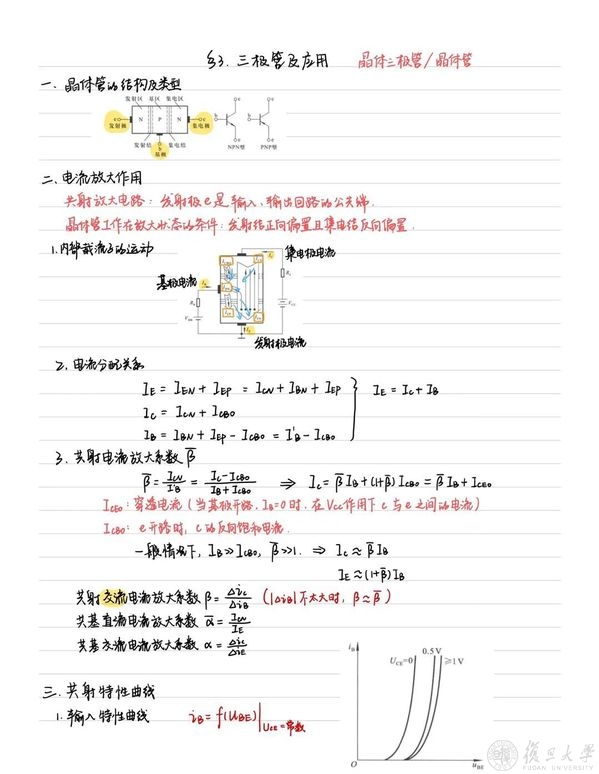 §3. 三极管及应用 晶体三极管/晶体管
一. 晶体管的结构及类型
发射区 基区 集电区
e 发射极 N P N c 集电极
发射结 集电结
b 基极
b c e NPN型
b c e PNP型
二. 电流放大作用
共射放大电路：发射极e是输入、输出回路的公共端.
晶体管工作在放大状态的条件：发射结正向偏置且集电结反向偏置.
1. 内部载流子的运动
集电极电流
基极电流
发射极电流
2. 电流分配关系
I_E = I_EN + I_EP = I_CN + I_BN + I_EP
I_C = I_CN + I_CBO
I_B = I_BN + I_EP - I_CBO = I'_B - I_CBO
I_E = I_C + I_B
3. 共射电流放大系数 β̄
β̄ = I_CN / I'_B = (I_C - I_CBO) / (I_B + I_CBO) ⇒ I_C = β̄ I_B + (1+β̄) I_CBO = β̄ I_B + I_CEO
I_CEO：穿透电流（当基极开路，I_B=0时，在V_CC作用下 c 与 e 之间的电流）
I_CBO：e开路时，c的反向饱和电流.
一般情况下，I_B ≫ I_CBO，β̄ ≫ 1. ⇒ I_C ≈ β̄ I_B
I_E ≈ (1+β̄) I_B
共射交流电流放大系数 β = Δi_C / Δi_B （|Δi_B| 不太大时，β ≈ β̄）
共基直流电流放大系数 ᾱ = I_CN / I_E
共基交流电流放大系数 α = Δi_C / Δi_E
三. 共射特性曲线
1. 输入特性曲线 i_B = f(U_BE)|U_CE=常数
i_B
U_CE=0 0.5V ≥1V
O u_BE
復旦大學
FUDAN UNIVERSITY